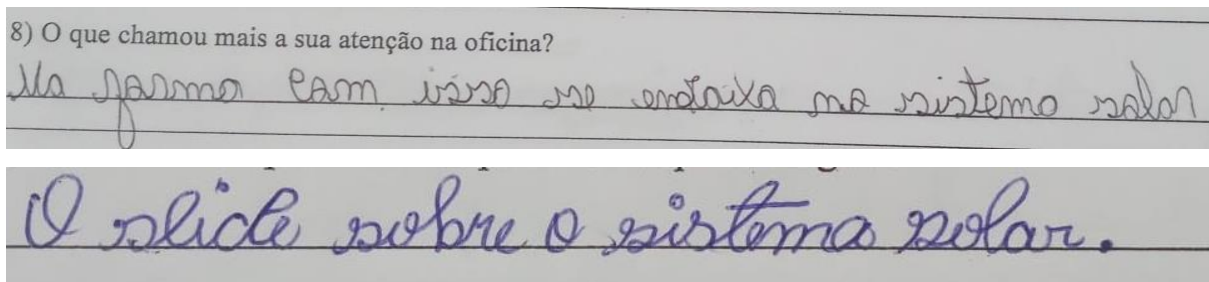 8) O que chamou mais a sua atenção na oficina?
Na forma com isso se encaixa no sistema solar
O slide sobre o sistema solar.